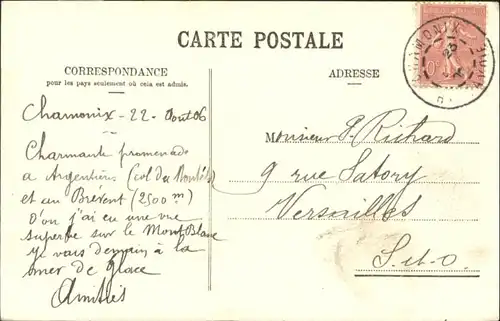 CARTE POSTALE
CORRESPONDANCE
pour les pays seulement où cela est admis.
ADRESSE
CHAMONIX
Chamonix - 22 - Aout 06
Charmante promenade
a Argentière (col des Montéts)
et au Brévent (2500 m)
D'où j'ai eu une vue
superbe sur le Mont Blanc
Y vais demain à la
mer de glace
Amitiés
Monsieur P. Richard
9 rue Satory
Versailles
S. et O.